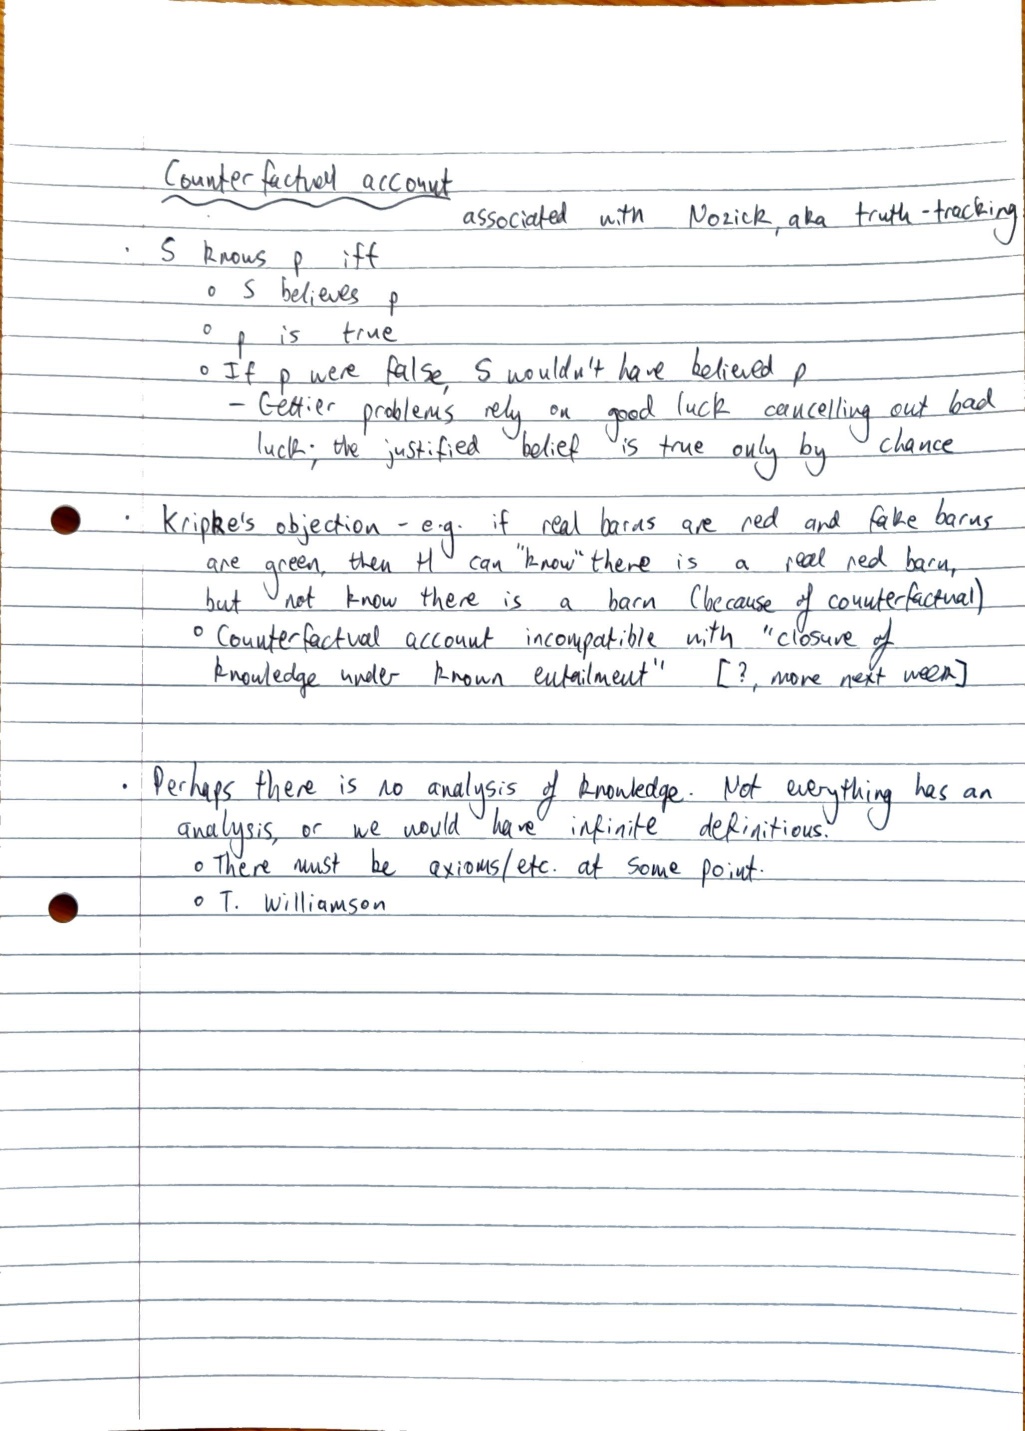 Counterfactual account
associated with Nozick, aka truth-tracking
· S knows p iff
o S believes p
o p is true
o If p were false, S wouldn't have believed p
- Gettier problems rely on good luck cancelling out bad
luck; the justified belief is true only by chance
· Kripke's objection - e.g. if real barns are red and fake barns
are green, then H can "know" there is a real red barn,
but not know there is a barn (because of counterfactual)
o Counterfactual account incompatible with "closure of
knowledge under known entailment" [?, more next week]
· Perhaps there is no analysis of knowledge. Not everything has an
analysis, or we would have infinite definitions.
o There must be axioms/etc. at some point.
o T. Williamson